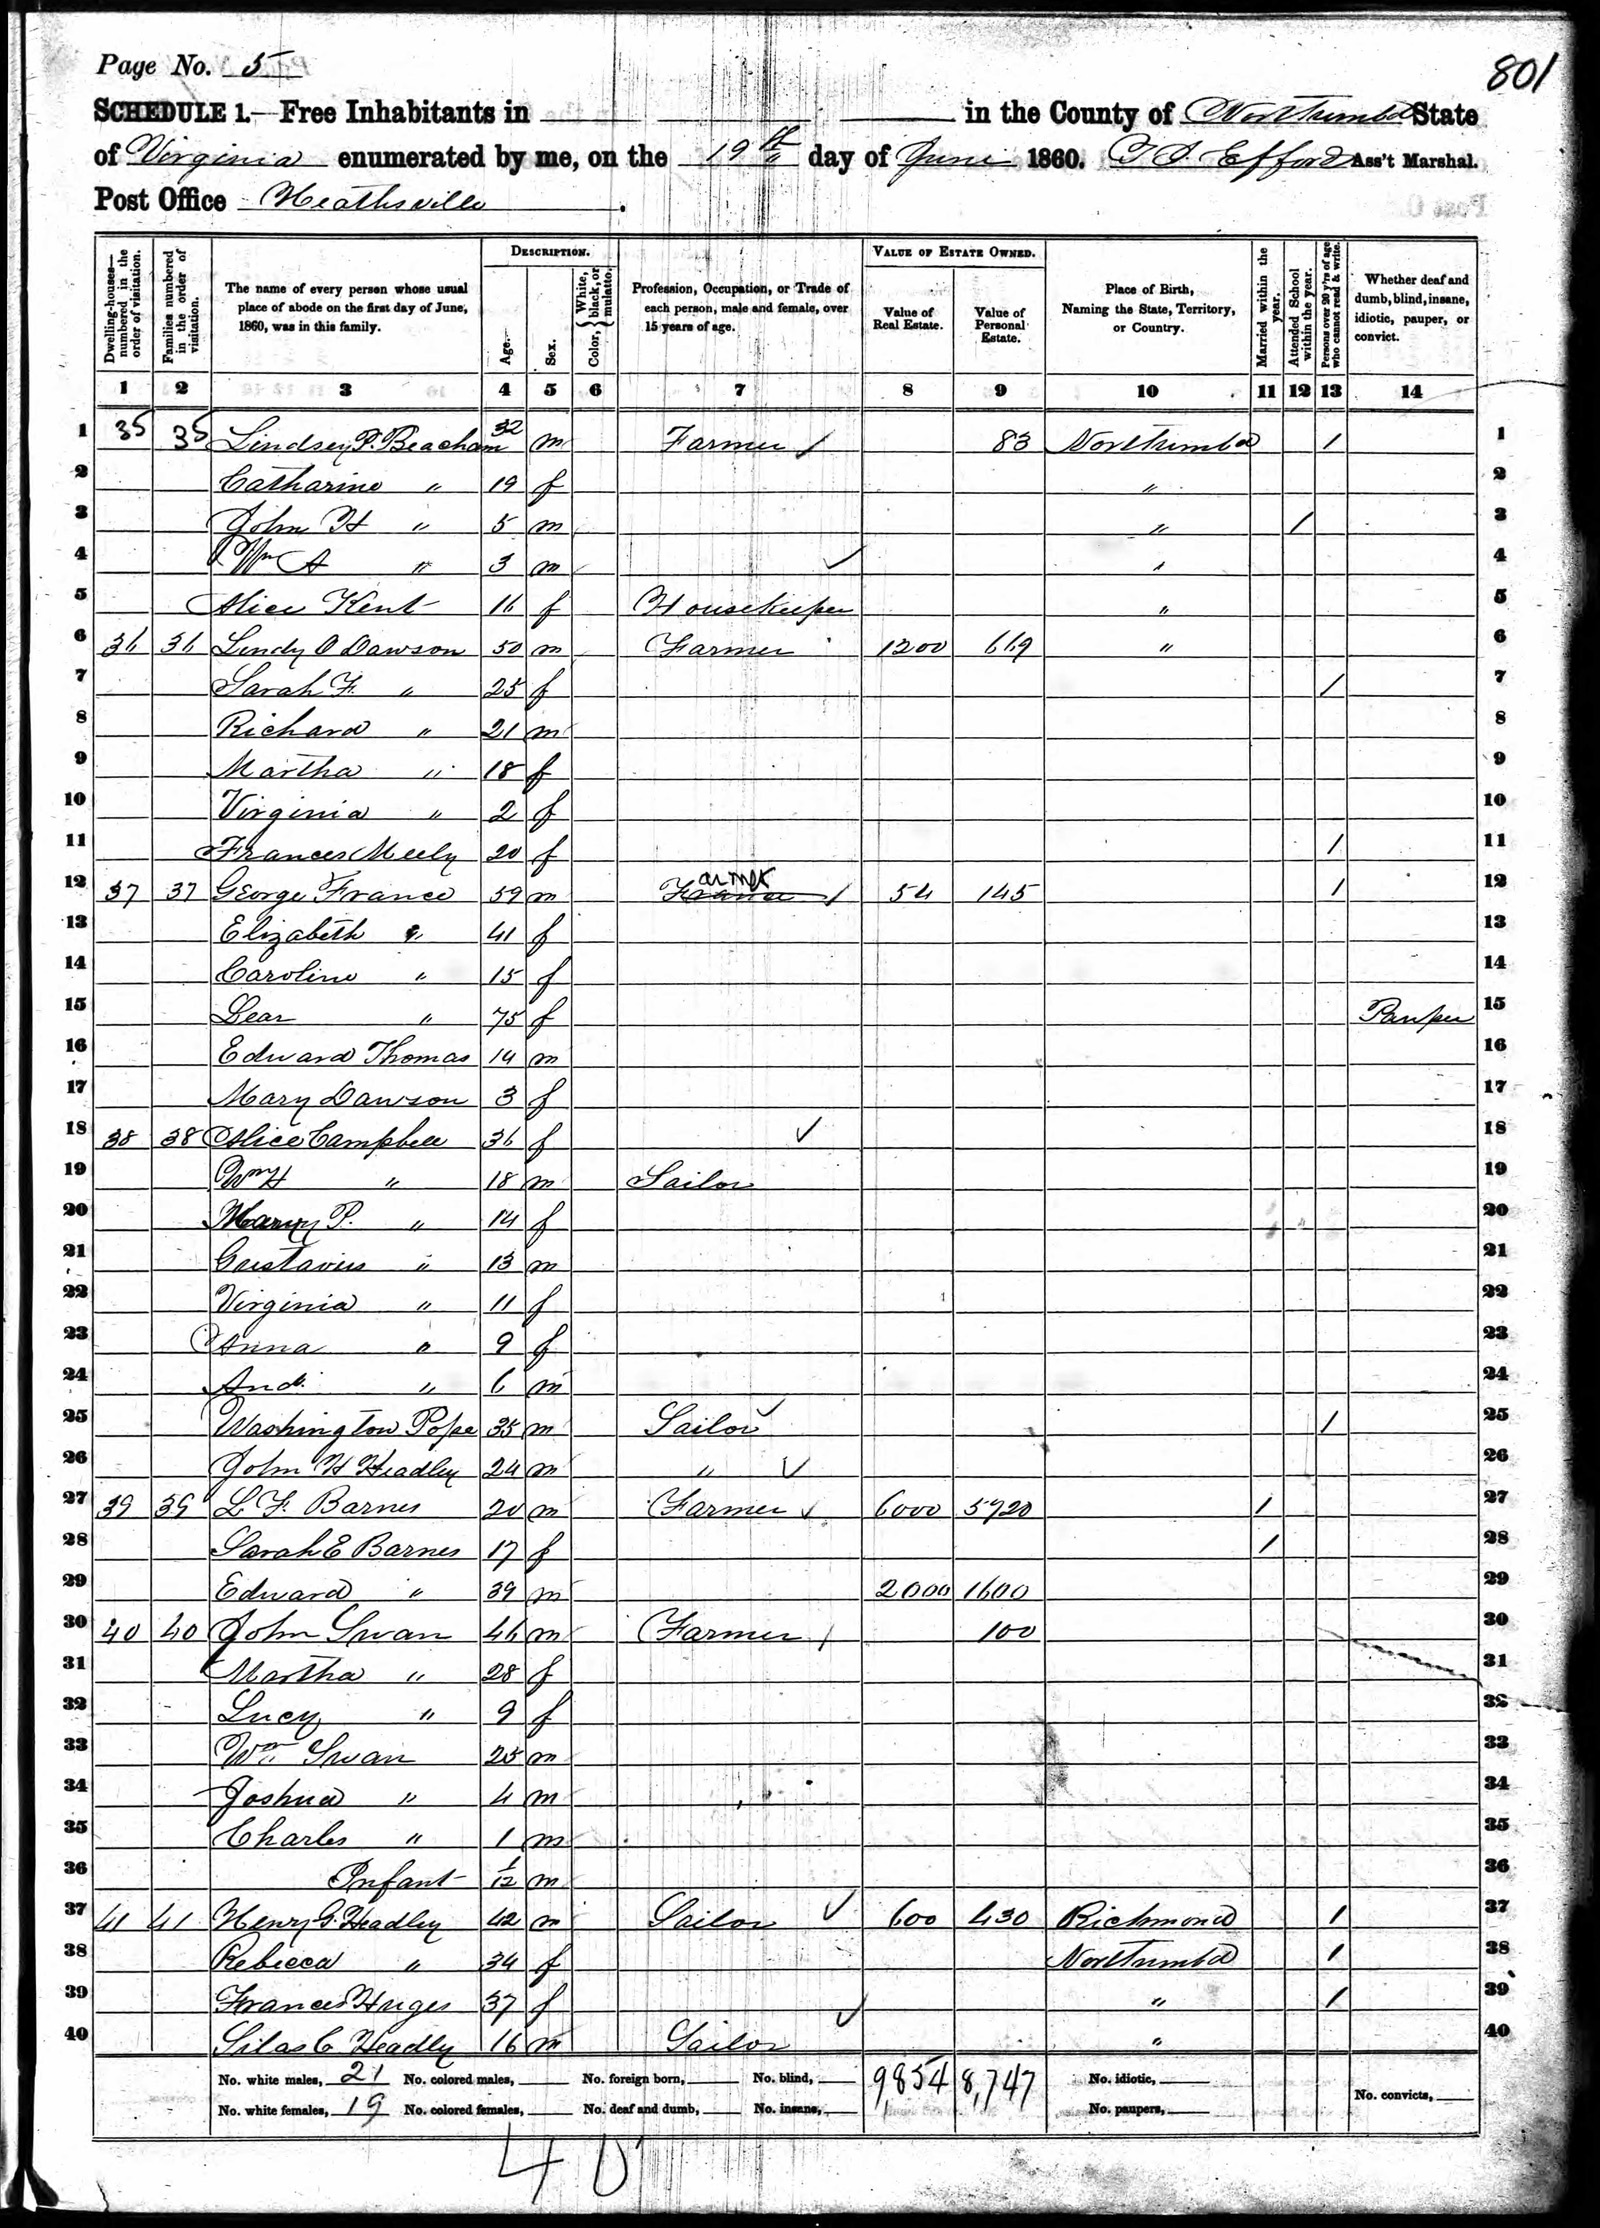 Page No. 5
801
SCHEDULE 1.—Free Inhabitants in in the County of Northumbd State
of Virginia enumerated by me, on the 19th day of June 1860. T S. Efford Ass't Marshal.
Post Office Heathsville.
DESCRIPTION. VALUE OF ESTATE OWNED.
Dwelling-houses—numbered in the order of visitation. Families numbered in the order of visitation. The name of every person whose usual place of abode on the first day of June, 1860, was in this family. Age. Sex. Color, { White, black, or mulatto. Profession, Occupation, or Trade of each person, male and female, over 15 years of age. Value of Real Estate. Value of Personal Estate. Place of Birth, Naming the State, Territory, or Country. Married within the year. Attended School within the year. Persons over 20 y'rs of age who cannot read & write. Whether deaf and dumb, blind, insane, idiotic, pauper, or convict.
1 2 3 4 5 6 7 8 9 10 11 12 13 14
1 35 35 Lindsey P. Beacham 32 m Farmer / 83 Northumbd / 1
2 Catharine " 19 f " 2
3 John H " 5 m " / 3
4 Wm A " 3 m ✓ " 4
5 Alice Kent 16 f Housekeeper " 5
6 36 36 Lindy O Dawson 50 m Farmer 1200 669 " 6
7 Sarah F. " 25 f / 7
8 Richard " 21 m 8
9 Martha " 18 f 9
10 Virginia " 2 f 10
11 Frances Meely 20 f / 11
12 37 37 George France 59 m Farmer / 54 145 / 12
13 Elizabeth " 41 f 13
14 Caroline " 15 f 14
15 Lear " 75 f Pauper 15
16 Edward Thomas 14 m 16
17 Mary Dawson 3 f 17
18 38 38 Alice Campbell 36 f ✓ 18
19 Wm H " 18 m Sailor 19
20 Mary P. " 14 f 20
21 Gustavius " 13 m 21
22 Virginia " 11 f 22
23 Anna " 9 f 23
24 And. " 6 m 24
25 Washington Pope 35 m Sailor ✓ / 25
26 John H Headley 24 m " ✓ 26
27 39 39 L F. Barnes 20 m Farmer ✓ 6000 5720 / 27
28 Sarah E Barnes 17 f / 28
29 Edward " 39 m 2000 1600 29
30 40 40 John Swan 46 m Farmer / 100 30
31 Martha " 28 f 31
32 Lucy " 9 f 32
33 Wm Swan 25 m 33
34 Joshua " 4 m 34
35 Charles " 1 m 35
36 Infant 1/12 m 36
37 41 41 Henry G. Headley 42 m Sailor ✓ 600 430 Richmond / 37
38 Rebecca " 34 f Northumbd / 38
39 Frances Huges 37 f ✓ " / 39
40 Silas C Headly 16 m Sailor " 40
No. white males, 21 No. colored males, No. foreign born, No. blind, 9,854 8,747 No. idiotic,
No. white females, 19 No. colored females, No. deaf and dumb, No. insane, No. paupers, No. convicts,
40